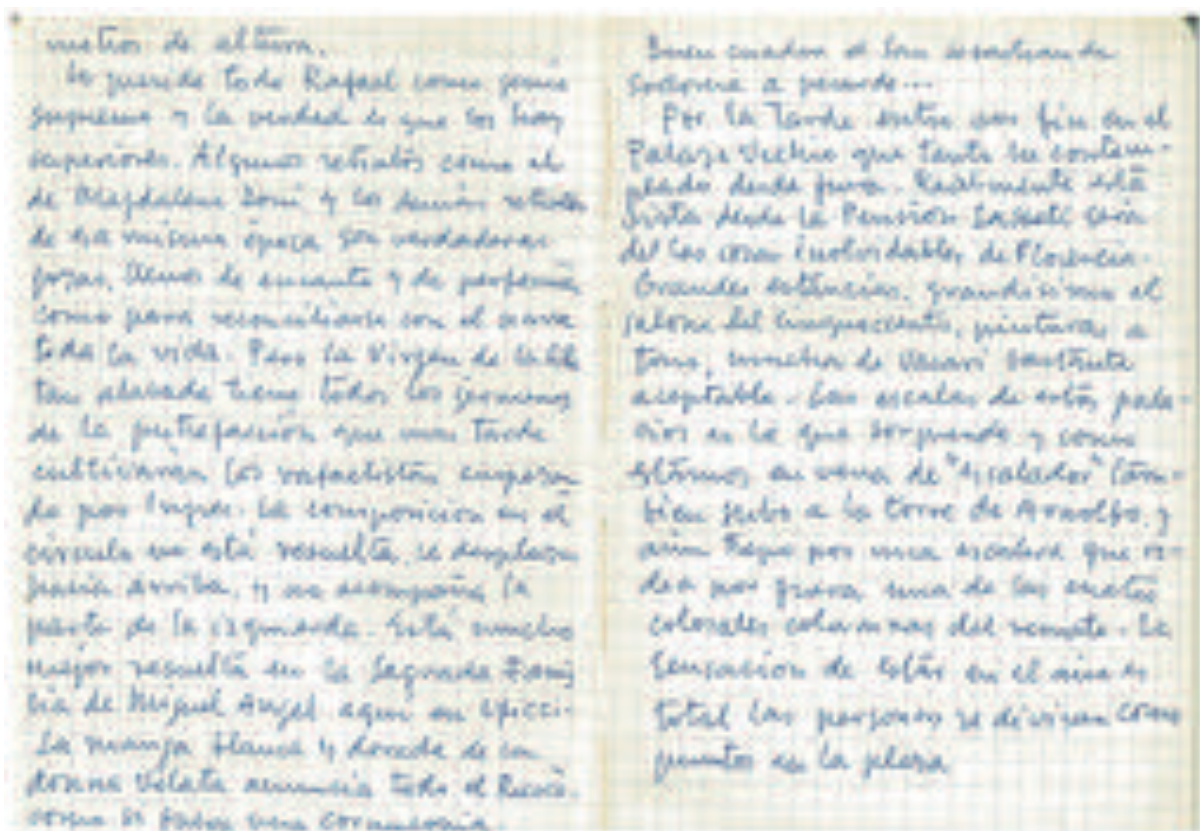 metros de altura.
He querido todo Rafael como genio
supremo y la verdad es que los hay
superiores. Algunos retratos como el
de Magdalena Doni y los demás retratos
de esa misma época son verdaderas
joyas, llenos de encanto y de perfección
como para reconciliarse con el
toda la vida. Pero la Virgen de la Silla
tan alabada tiene todos los gérmenes
de la putrefacción que mas tarde
cultivaran los rafaelistas empezan
do por Ingres. La composición en el
círculo no está resuelta, se desplaza
hacia arriba, y no acompaña la
parte de la izquierda. Está mucho
mejor resuelta en la Sagrada Fami
lia de Miguel Angel aquí en
La manga blanca y dorada de la
donna Velata anuncia todo el Rococó.
como si fuera una
Buen cuadro el San
a
Por la Tarde entro por fin en el
Palazo Vechio que tanto he contem-
plado desde fuera. Realmente está
vista desde la Pension es una
de las cosas inolvidables de Florencia.
Grandes estancias, grandisimo el
salone del Cinquecento, pinturas a
tono, muchas de Vasari bastante
aceptable. Las escalas de estos pala-
cios es lo que sorprende y como
estamos en vena de "escalador" tam-
bien subo a la torre de Arnolfo, y
aún llego por una escalera que ro-
dea por una de las cuatro
colosales columnas del remate. La
sensación de estar en el aire es
total las personas se divisan como
puntos en la plaza